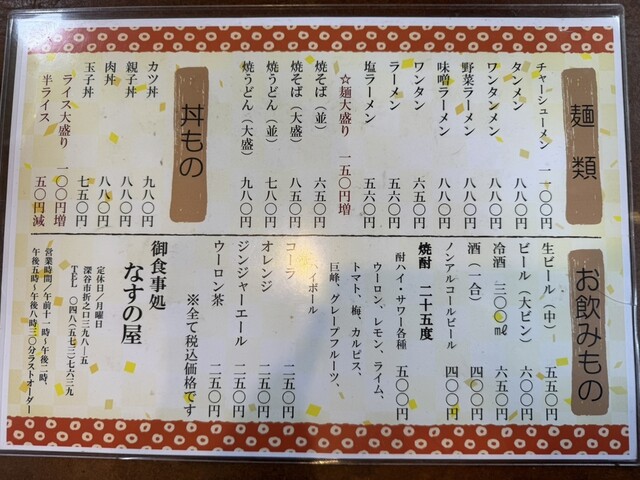 麺類
チャーシューメン 一一〇〇円
タンメン 八八〇円
ワンタンメン 八八〇円
野菜ラーメン 八八〇円
味噌ラーメン 八八〇円
ワンタン 六五〇円
ラーメン 五六〇円
塩ラーメン 五六〇円
☆麺大盛り 一五〇円増
焼そば(並) 六五〇円
焼そば(大盛) 八五〇円
焼うどん(並) 七八〇円
焼うどん(大盛) 九八〇円
丼もの
カツ丼 九八〇円
親子丼 八八〇円
肉丼 八八〇円
玉子丼 七五〇円
ライス大盛り 一〇〇円増
半ライス 五〇円減
お飲みもの
生ビール(中) 五五〇円
ビール(大ビン) 六〇〇円
冷酒 三〇〇㎖ 六五〇円
酒(一合) 四〇〇円
ノンアルコールビール 四〇〇円
焼酎 二十五度
酎ハイ・サワー各種 五〇〇円
ウーロン、レモン、ライム、
トマト、梅、カルピス、
巨峰、グレープフルーツ、
ハイボール
コーラ 二五〇円
オレンジ 二五〇円
ジンジャーエール 二五〇円
ウーロン茶 二五〇円
※全て税込価格です
御食事処
なすの屋
定休日/月曜日
深谷市折之口三九八-五
TEL 〇四八(五七三)七六三九
営業時間/午前十一時〜午後二時、
午後五時〜午後八時三〇分ラストオーダー